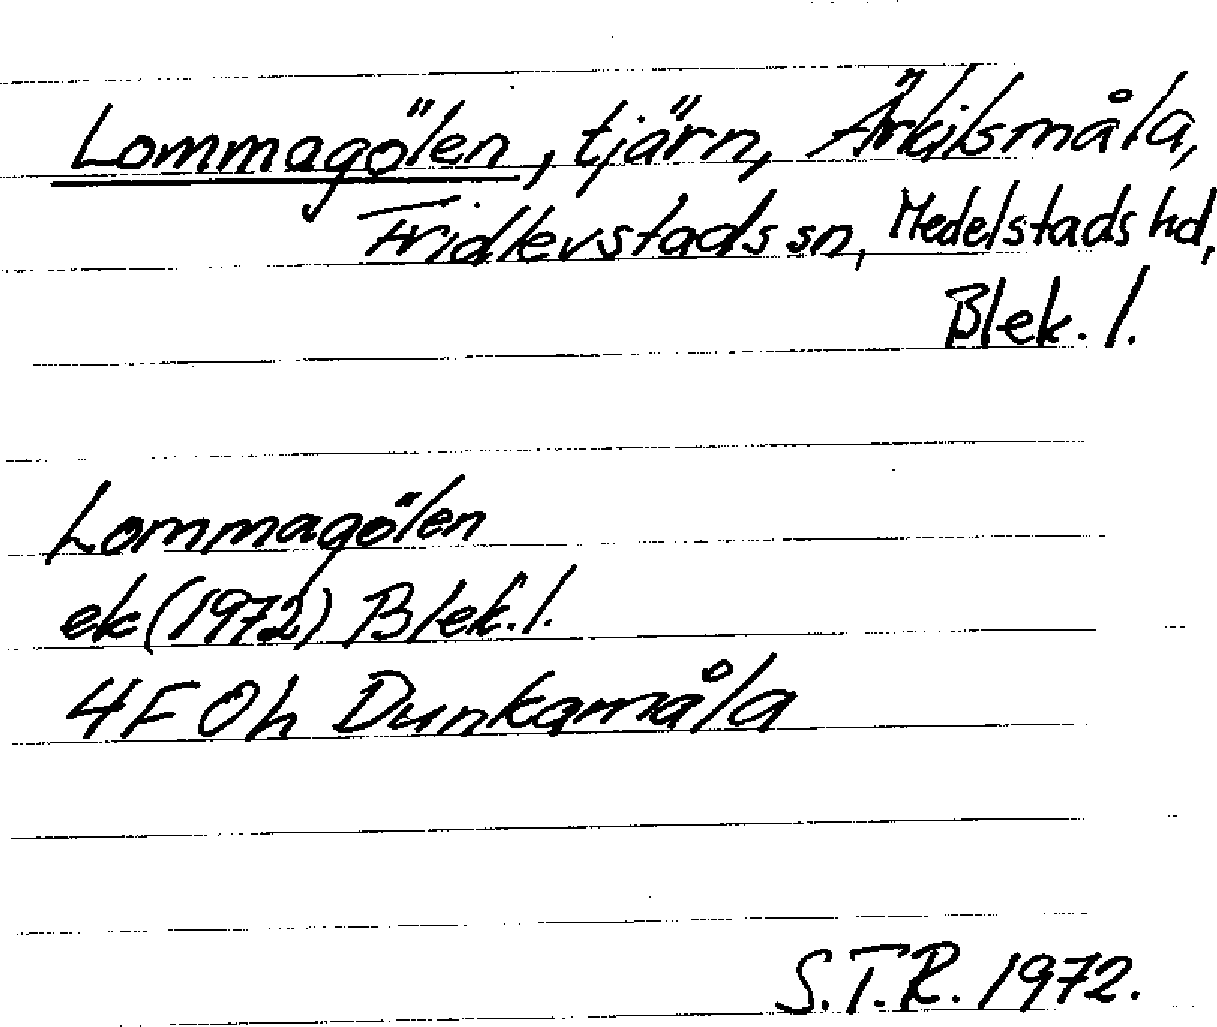 Lommagölen, tjärn, Ärkilsmåla,
Fridlevstads sn, Medelstads hd,
Blek. l.
Lommagölen
ek (1972) Blek. l.
4F 0h Dunkamåla
S.T.R. 1972.